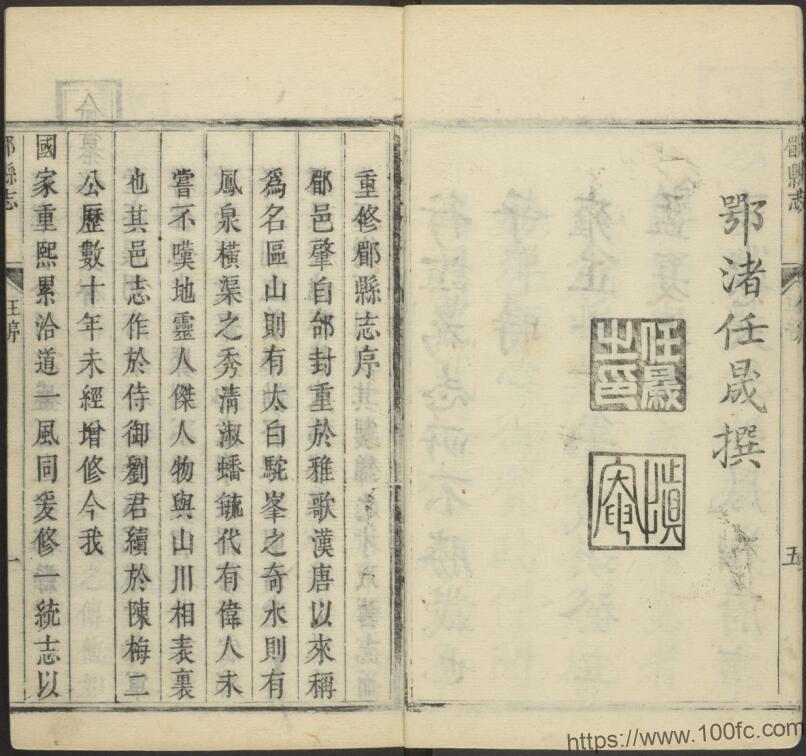 郿縣志
五
鄂渚任晟撰
任晟
之印
重修郿縣志序
郿邑肇自邰封重於雅歌漢唐以來稱
爲名區山則有太白駝峯之奇水則有
鳳泉橫渠之秀清淑蟠毓代有偉人未
嘗不嘆地靈人傑人物與山川相表裏
也其邑志作於侍御劉君續於陳梅二
公歷數十年未經增修今我
國家重熙累洽道一風同爰修一統志以
郿縣志
汪序
一
https://www.100fc.com